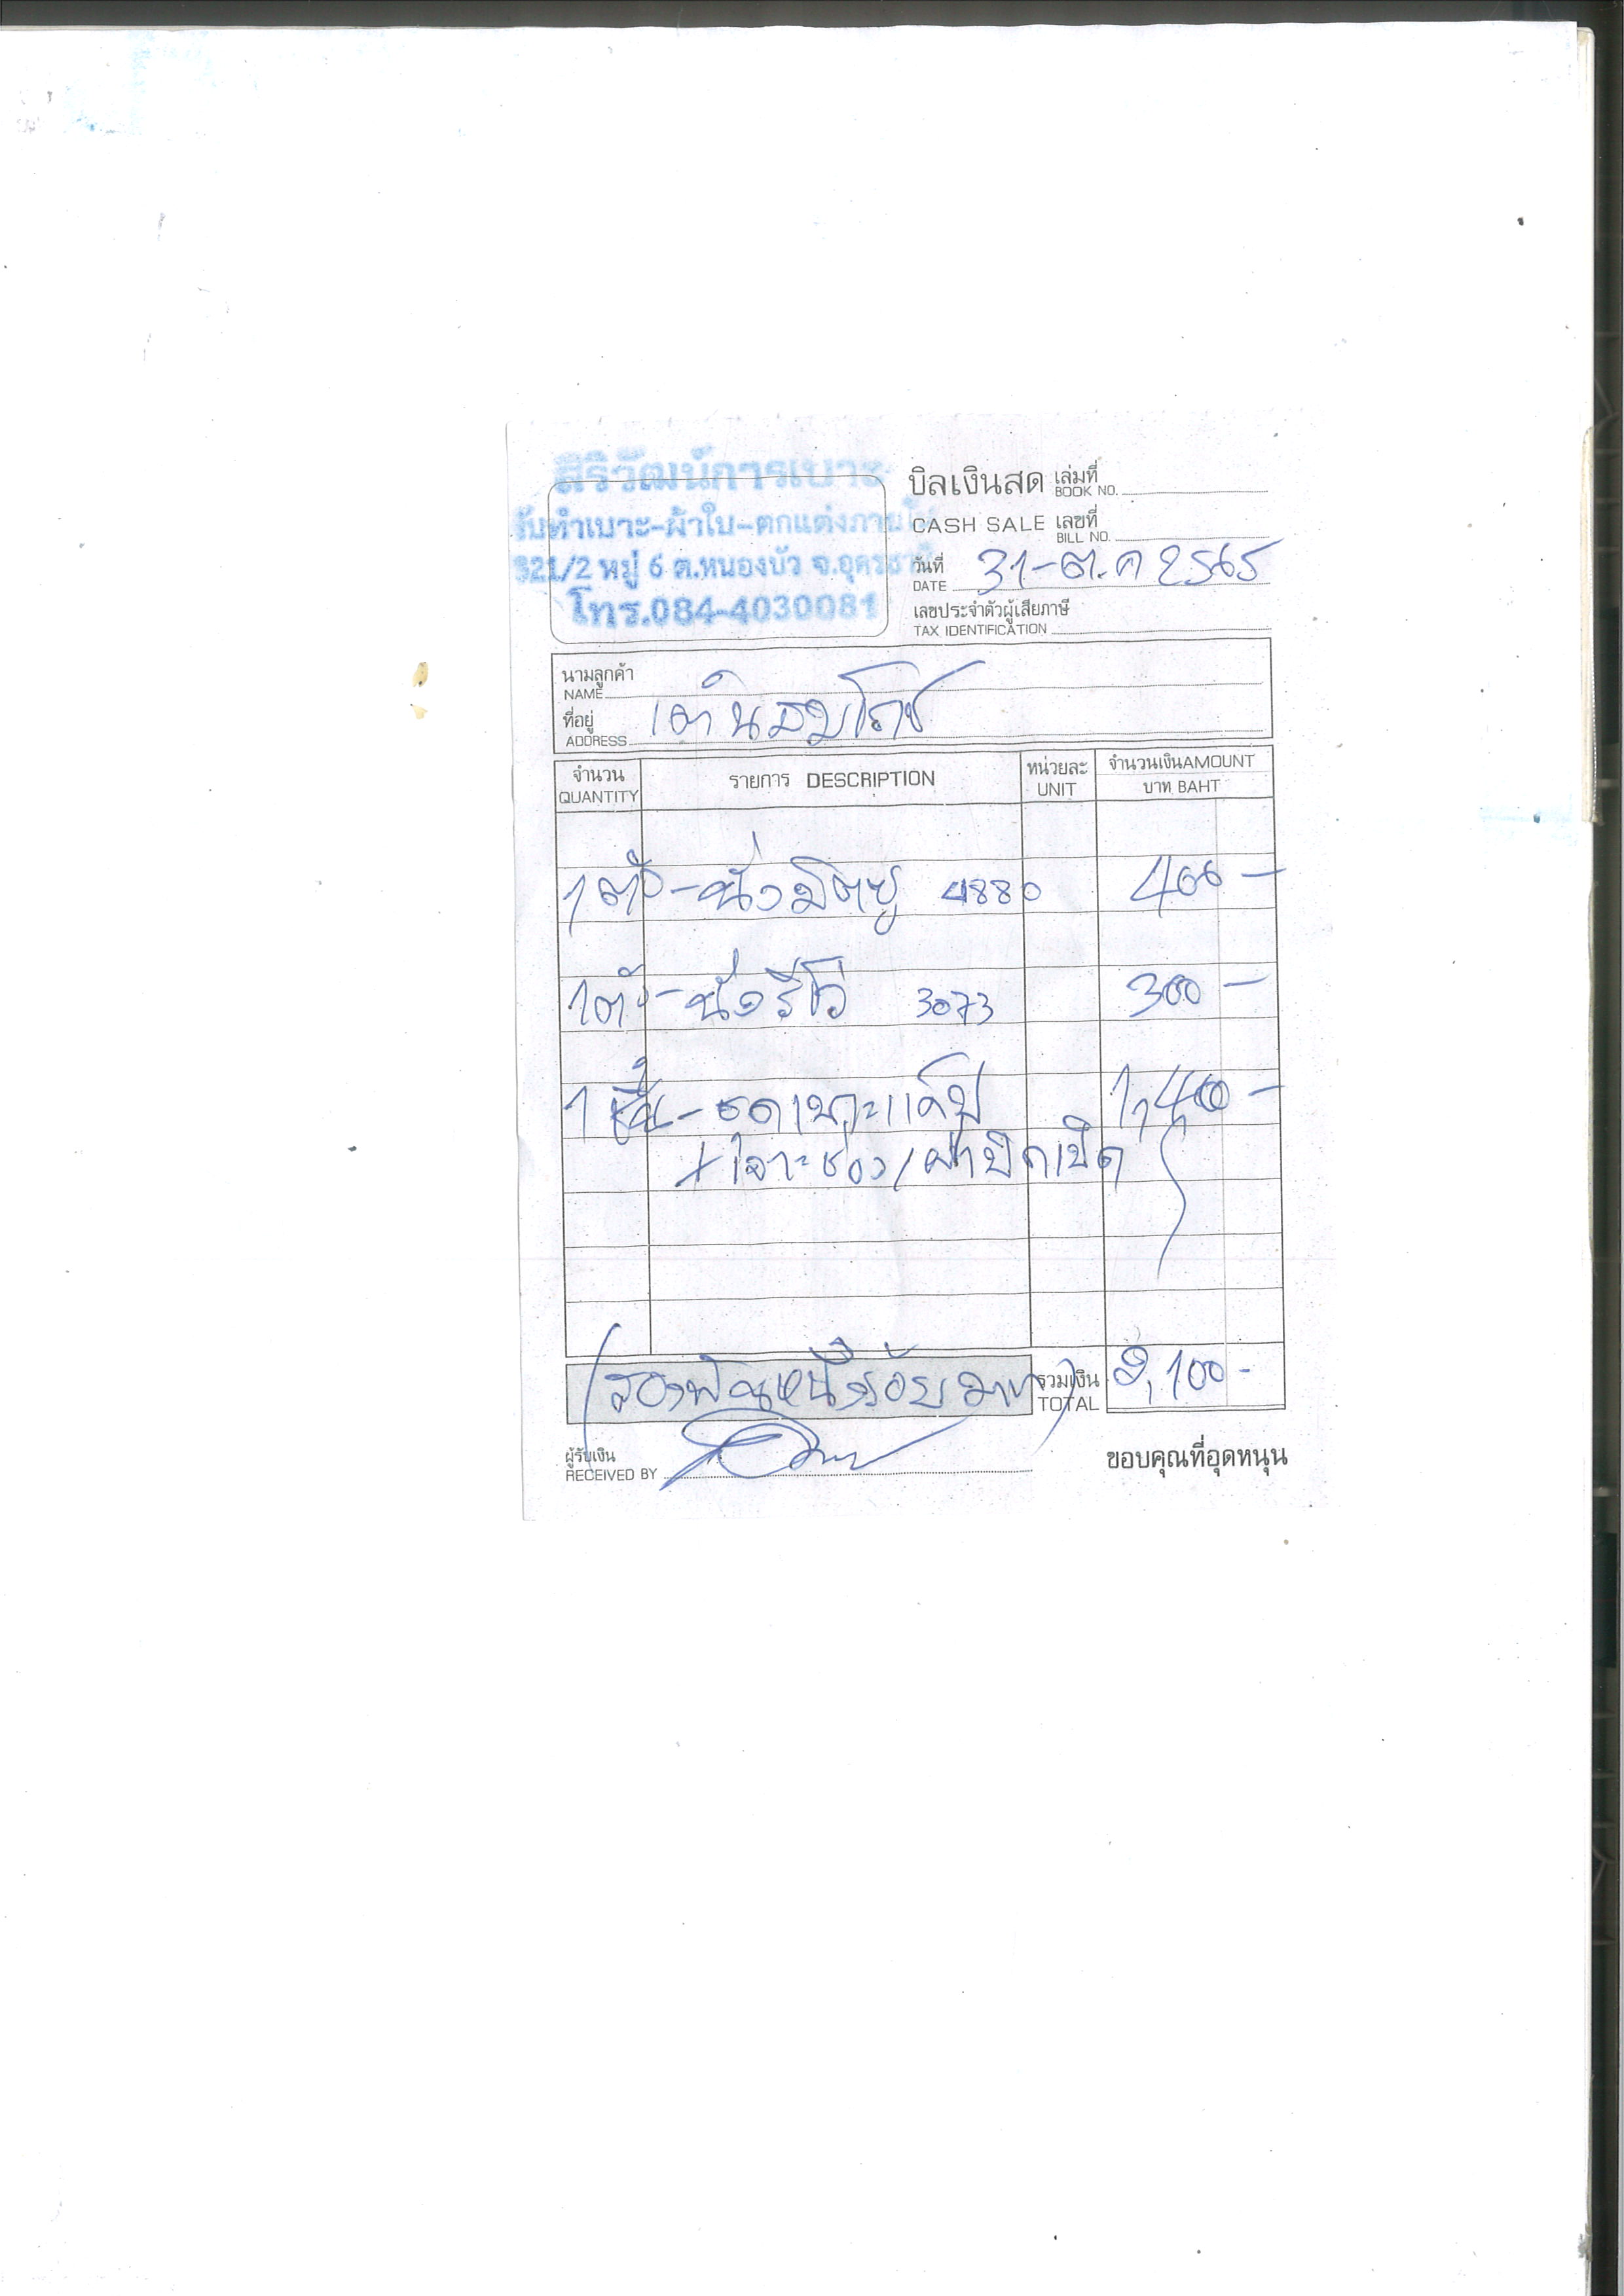 สิริวัฒน์การเบาะ
รับทำเบาะ-ผ้าใบ-ตกแต่งภายใน
321/2 หมู่ 6 ต.หนองบัว จ.อุดรธานี
โทร.084-4030081
บิลเงินสด เล่มที่
BOOK NO.
CASH SALE เลขที่
BILL NO.
วันที่ 31-ต.ค 2565
DATE
เลขประจำตัวผู้เสียภาษี
TAX IDENTIFICATION
นามลูกค้า
NAME
ที่อยู่
ADDRESS
จำนวน รายการ DESCRIPTION หน่วยละ จำนวนเงินAMOUNT
QUANTITY UNIT บาท BAHT
1 ตัว - นั่งมิตซู 4880 400 -
1 ตัว - นั่งรีโว่ 3073 300 -
1 - เบาะแค๊ป 1,400 -
+ เจาะช่อง/ฝาปิดเปิด
(สองพันหนึ่งร้อยบาท) รวมเงิน 2,100 -
TOTAL
ผู้รับเงิน
RECEIVED BY
ขอบคุณที่อุดหนุน